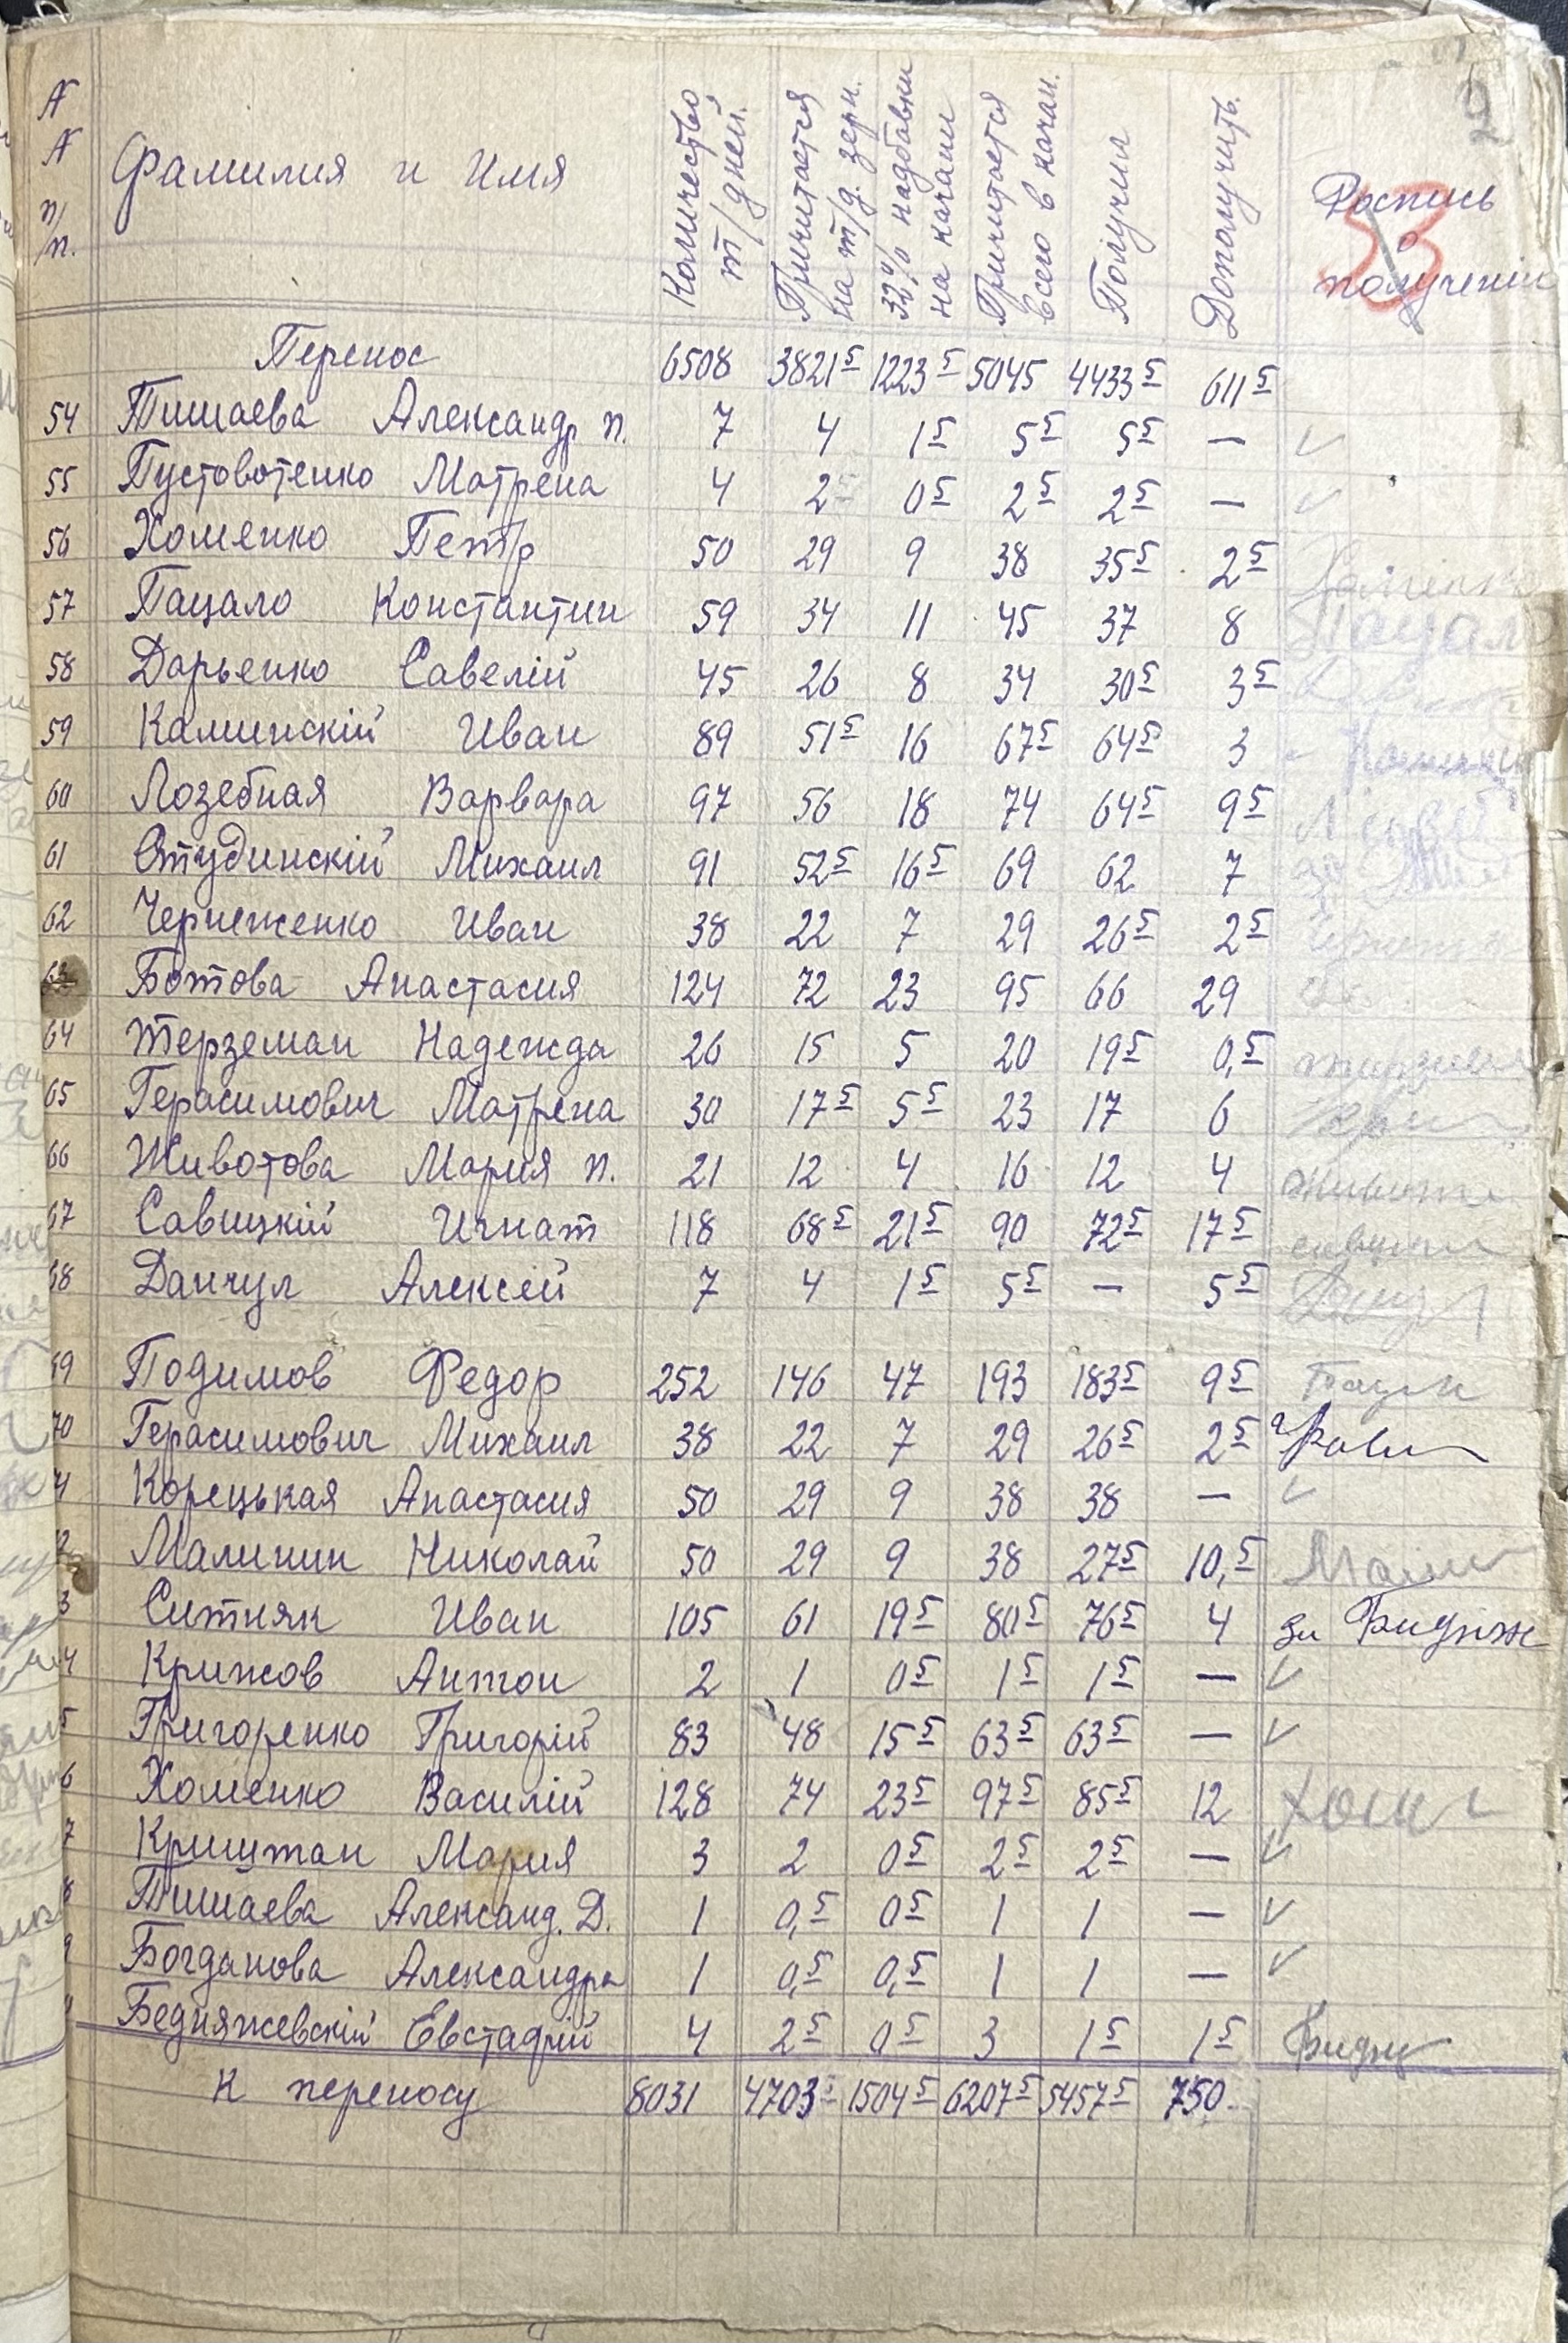 № № п/п. Фамилия и Имя Количество т/дней. Причитается на т/д. зерн. 32% надбавки на качан Причитается всего в качан. Получил Дополучить. Роспись о получении
2
53
Перенос 6508 3821 5 1223 5 5045 4433 5 611 5
54 Тишаева Александр. п. 7 4 1 5 5 5 5 5 — ✓
55 Пустовотенко Матрена 4 2 5 0 5 2 5 2 5 — ✓
56 Хоменко Петр 50 29 9 38 35 5 2 5
57 Пацало Константин 59 34 11 45 37 8 Пацало
58 Дарьенко Савелій 45 26 8 34 30 5 3 5
59 Каминскій Иван 89 51 5 16 67 5 64 5 3
60 Лозебная Варвара 97 56 18 74 64 5 9 5
61 Студинскій Михаил 91 52 5 16 5 69 62 7
62 Чернеженко Иван 38 22 7 29 26 5 2 5
63 Ботова Анастасия 124 72 23 95 66 29
64 Терземан Надежда 26 15 5 20 19 5 0,5
65 Герасимович Матрена 30 17 5 5 5 23 17 6
66 Животова Мария п. 21 12 4 16 12 4
67 Савицкій Игнат 118 68 5 21 5 90 72 5 17 5
68 Данчул Алексей 7 4 1 5 5 5 — 5 5
69 Подимов Федор 252 146 47 193 183 5 9 5
70 Герасимович Михаил 38 22 7 29 26 5 2 5
Корецькая Анастасия 50 29 9 38 38 — ✓
2 Малинин Николай 50 29 9 38 27 5 10,5
3 Ситняк Иван 105 61 19 5 80 5 76 5 4 за
4 Крижов Антон 2 1 0 5 1 5 1 5 — ✓
5 Григоренко Григорій 83 48 15 5 63 5 63 5 — ✓
6 Хоменко Василій 128 74 23 5 97 5 85 5 12
7 Криштан Мария 3 2 0 5 2 5 2 5 — ✓
8 Тишаева Александ. Д. 1 0,5 0 5 1 1 — ✓
9 Богданова Александра 1 0,5 0,5 1 1 — ✓
Бедняжевскій Евстафій 4 2 5 0 5 3 1 5 1 5
К переносу 8031 4703 5 1504 5 6207 5 5457 5 750